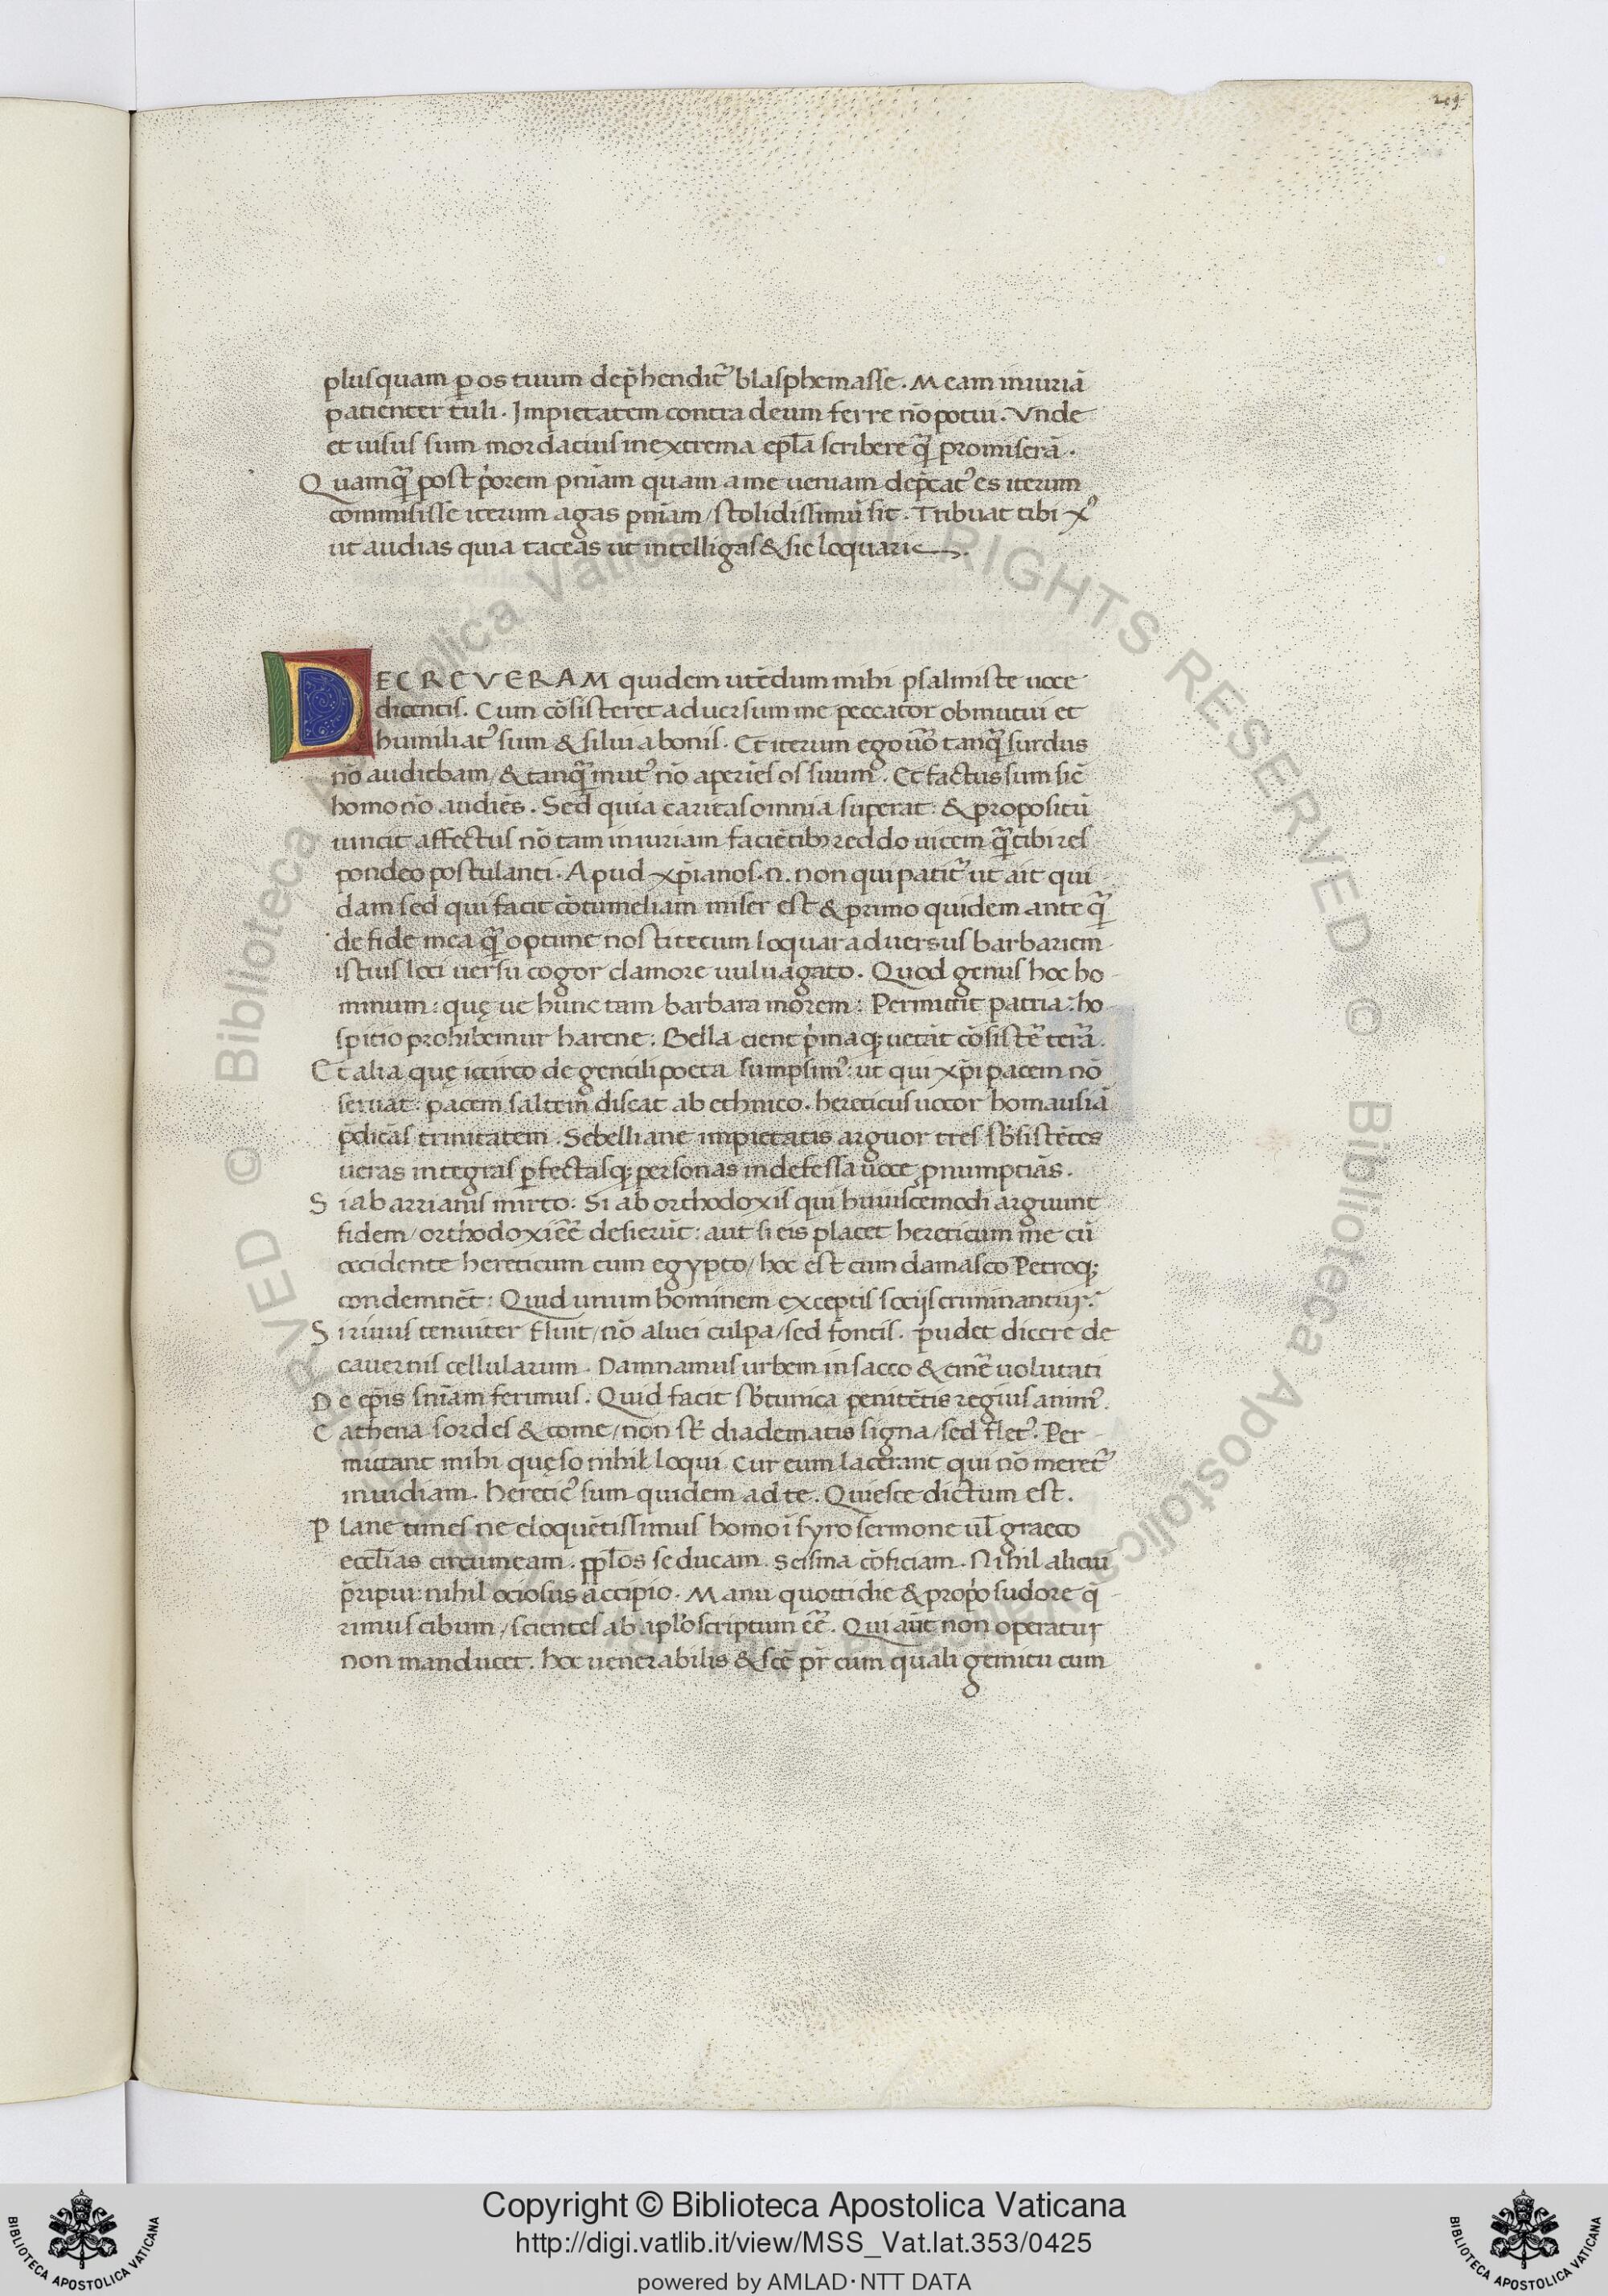 209
plusquam p̱ os tuum dep̄hendit᷑ blasphemasse. Meam iniuriā
patienter tuli. Impietatem contra deum ferre nō potui. Vnde
et uisus sum mordacius in extrema ep̄la scribere q̄ᷓ promiserā.
Quamq̄ᷓ post p̓orem pniam̄ quam a me ueniam dep̄cat᷒ es iterum
commisisse iterum agas pniam̄/ stolidissimū sit. Tribuat tibi x᷒
ut audias quia taceas ut intelligas & sic loquaris.
DECREVERAM quidem utēdum mihi psalmiste uoce
dicentis. Cum cōsisteret aduersum me peccator obmutui et
humiliat᷒ sum & silui a bonis. Et iterum ego uō tanq̄ᷓ surdus
nō audiebam/ & tanq̄ᷓ mut᷒ nō aperiēs os suum. Et factus sum sic̄
homo nō audiēs. Sed quia caritas omnia superat: & propositū
uincit affectus nō tam iniuriam faciētibꝫ reddo uicem q̄ᷓ tibi res
pondeo postulanti. Apud xp̄ianos .n. non qui patit᷑ ut ait qui
dam sed qui facit cōtumeliam miser est & primo quidem ante q̄ᷓ
de fide mea q̄ᷓ optime nosti tecum loquar aduersus barbariem
istius loci uersu cogor clamore uuluagato. Quod genus hoc ho
minum: quę ue hunc tam barbara morem: Permittit patria: ho
spitio prohibemur harene: Bella cient p̓maqꝫ uetāt cōsiste᷑ terrā.
Et alia quę iccirco de gentili poeta sumpsim᷒: ut qui xp̄i pacem nō
seruat: pacem saltem discat ab ethnico. hereticus uocor homausiā
p̄dicās trinitatem. Sebelliane impietatis arguor tres sb̓sistētes
ueras integras p̱fectasqꝫ personas indefessa uoce pnumptiās.
Si ab arrianis mirto: Si ab orthodoxis qui huiuscemodi arguunt
fidem/ orthodoxi ēē desierūt: aut si eis placet hereticum me cū
occidente hereticum cum egypto/ hoc est cum damasco Petroqꝫ
condemnēt: Quid unum hominem exceptis socijs criminantur.
Si riuus tenuiter fluit/ nō aluei culpa/ sed fontis. pudet dicere de
cauernis cellularum. Damnamus urbem in sacco & cine᷑ uolutati
De ep̄is sniam̄ ferimus. Quid facit sb̓ tunica penitētis regius anim᷒.
Cathena sordes & come/ non st̄ diadematis signa/ sed flet᷒. Per
mittant mihi quęso nihil loqui. Cur eum lacerant qui nō meret᷑
inuidiam. heretic᷒ sum quidem ad te. Quiesce dictum est.
Plane times ne eloquētissimus homo ī syro sermone ul̄ graeco
eccl̄ias circumeam. ppl̄os seducam. scisma cōficiam. Nihil alicui
p̄ripui: nihil ociosus accipio. Manu quottidie & prop̓o sudore q̄
rimus cibum/ scientes ab apl̓o scriptum ēē. Qui aūt non operatur
non manducet. hoc uenerabilis & sc̄e pr̄ cum quali gemitu cum
g
Copyright © Biblioteca Apostolica Vaticana
http://digi.vatlib.it/view/MSS_Vat.lat.353/0425
powered by AMLAD·NTT DATA
BIBLIOTECA APOSTOLICA VATICANA
BIBLIOTECA APOSTOLICA VATICANA